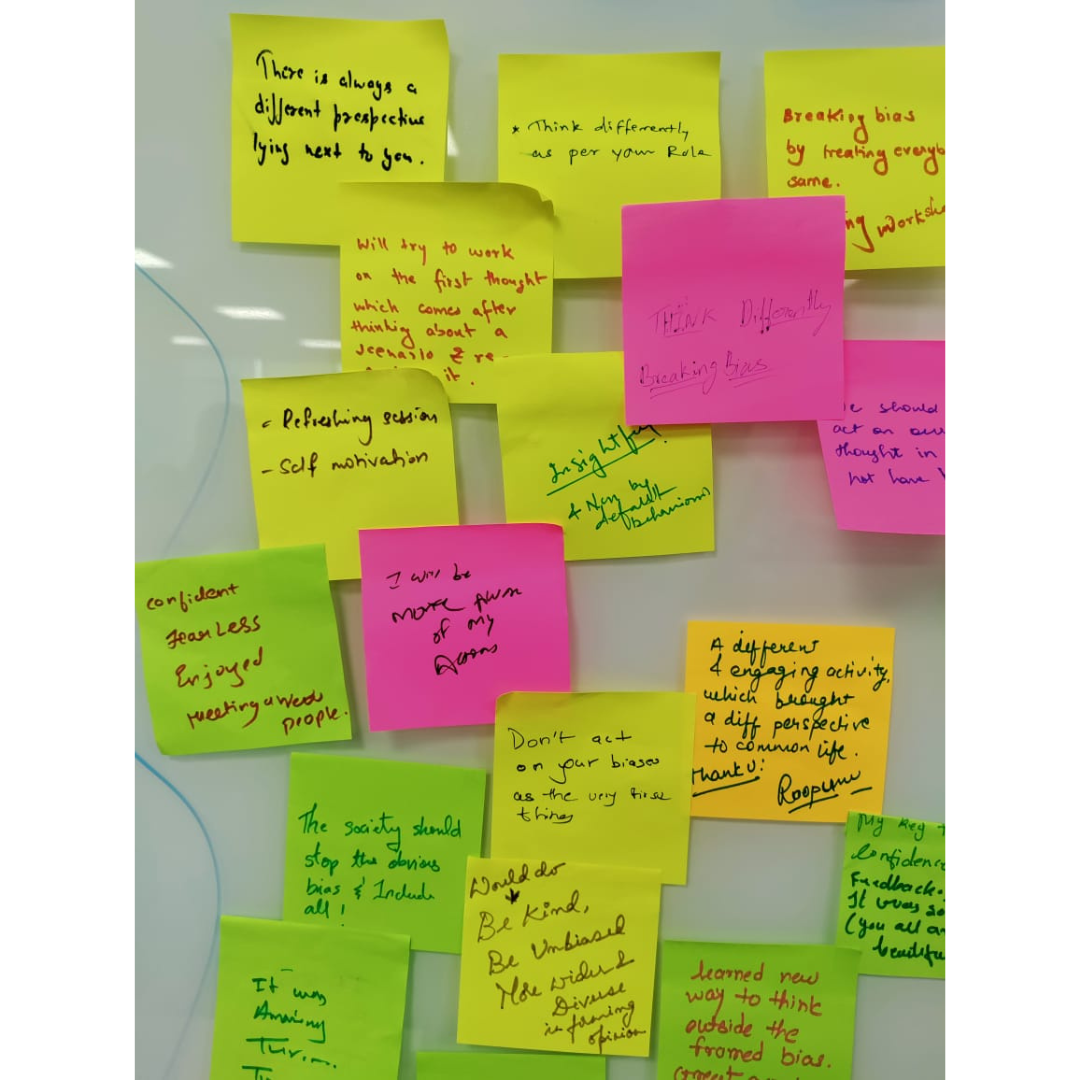 There is always a
different prespective
lying next to you.
* Think differently
as per your Role
Breaking bias
by treating everyb
same.
ng worksho
Will try to work
on the first thought
which comes after
thinking about a
scenario & re
it.
THINK Differently
Breaking Bias
should
act on our
thought in
not have
- Refreshing session
- Self motivation
Insightful
& New by
default
behaviours
confident
FearLess
Enjoyed
meeting
people.
I will be
more
of my
A different
& engaging activity,
which brought
a diff perspective
to common life.
Thank U!
Don't act
on your biases
as the very first
things
The society should
stop the obvious
bias & Include
all!
My key
Confidenc
Feedback.
It was so
(you all a
beautifu
Would do
Be Kind,
Be Unbiased
More wider &
Diverse
in framing
opinion
It was
Amazing
learned new
way to think
outside the
framed bias.